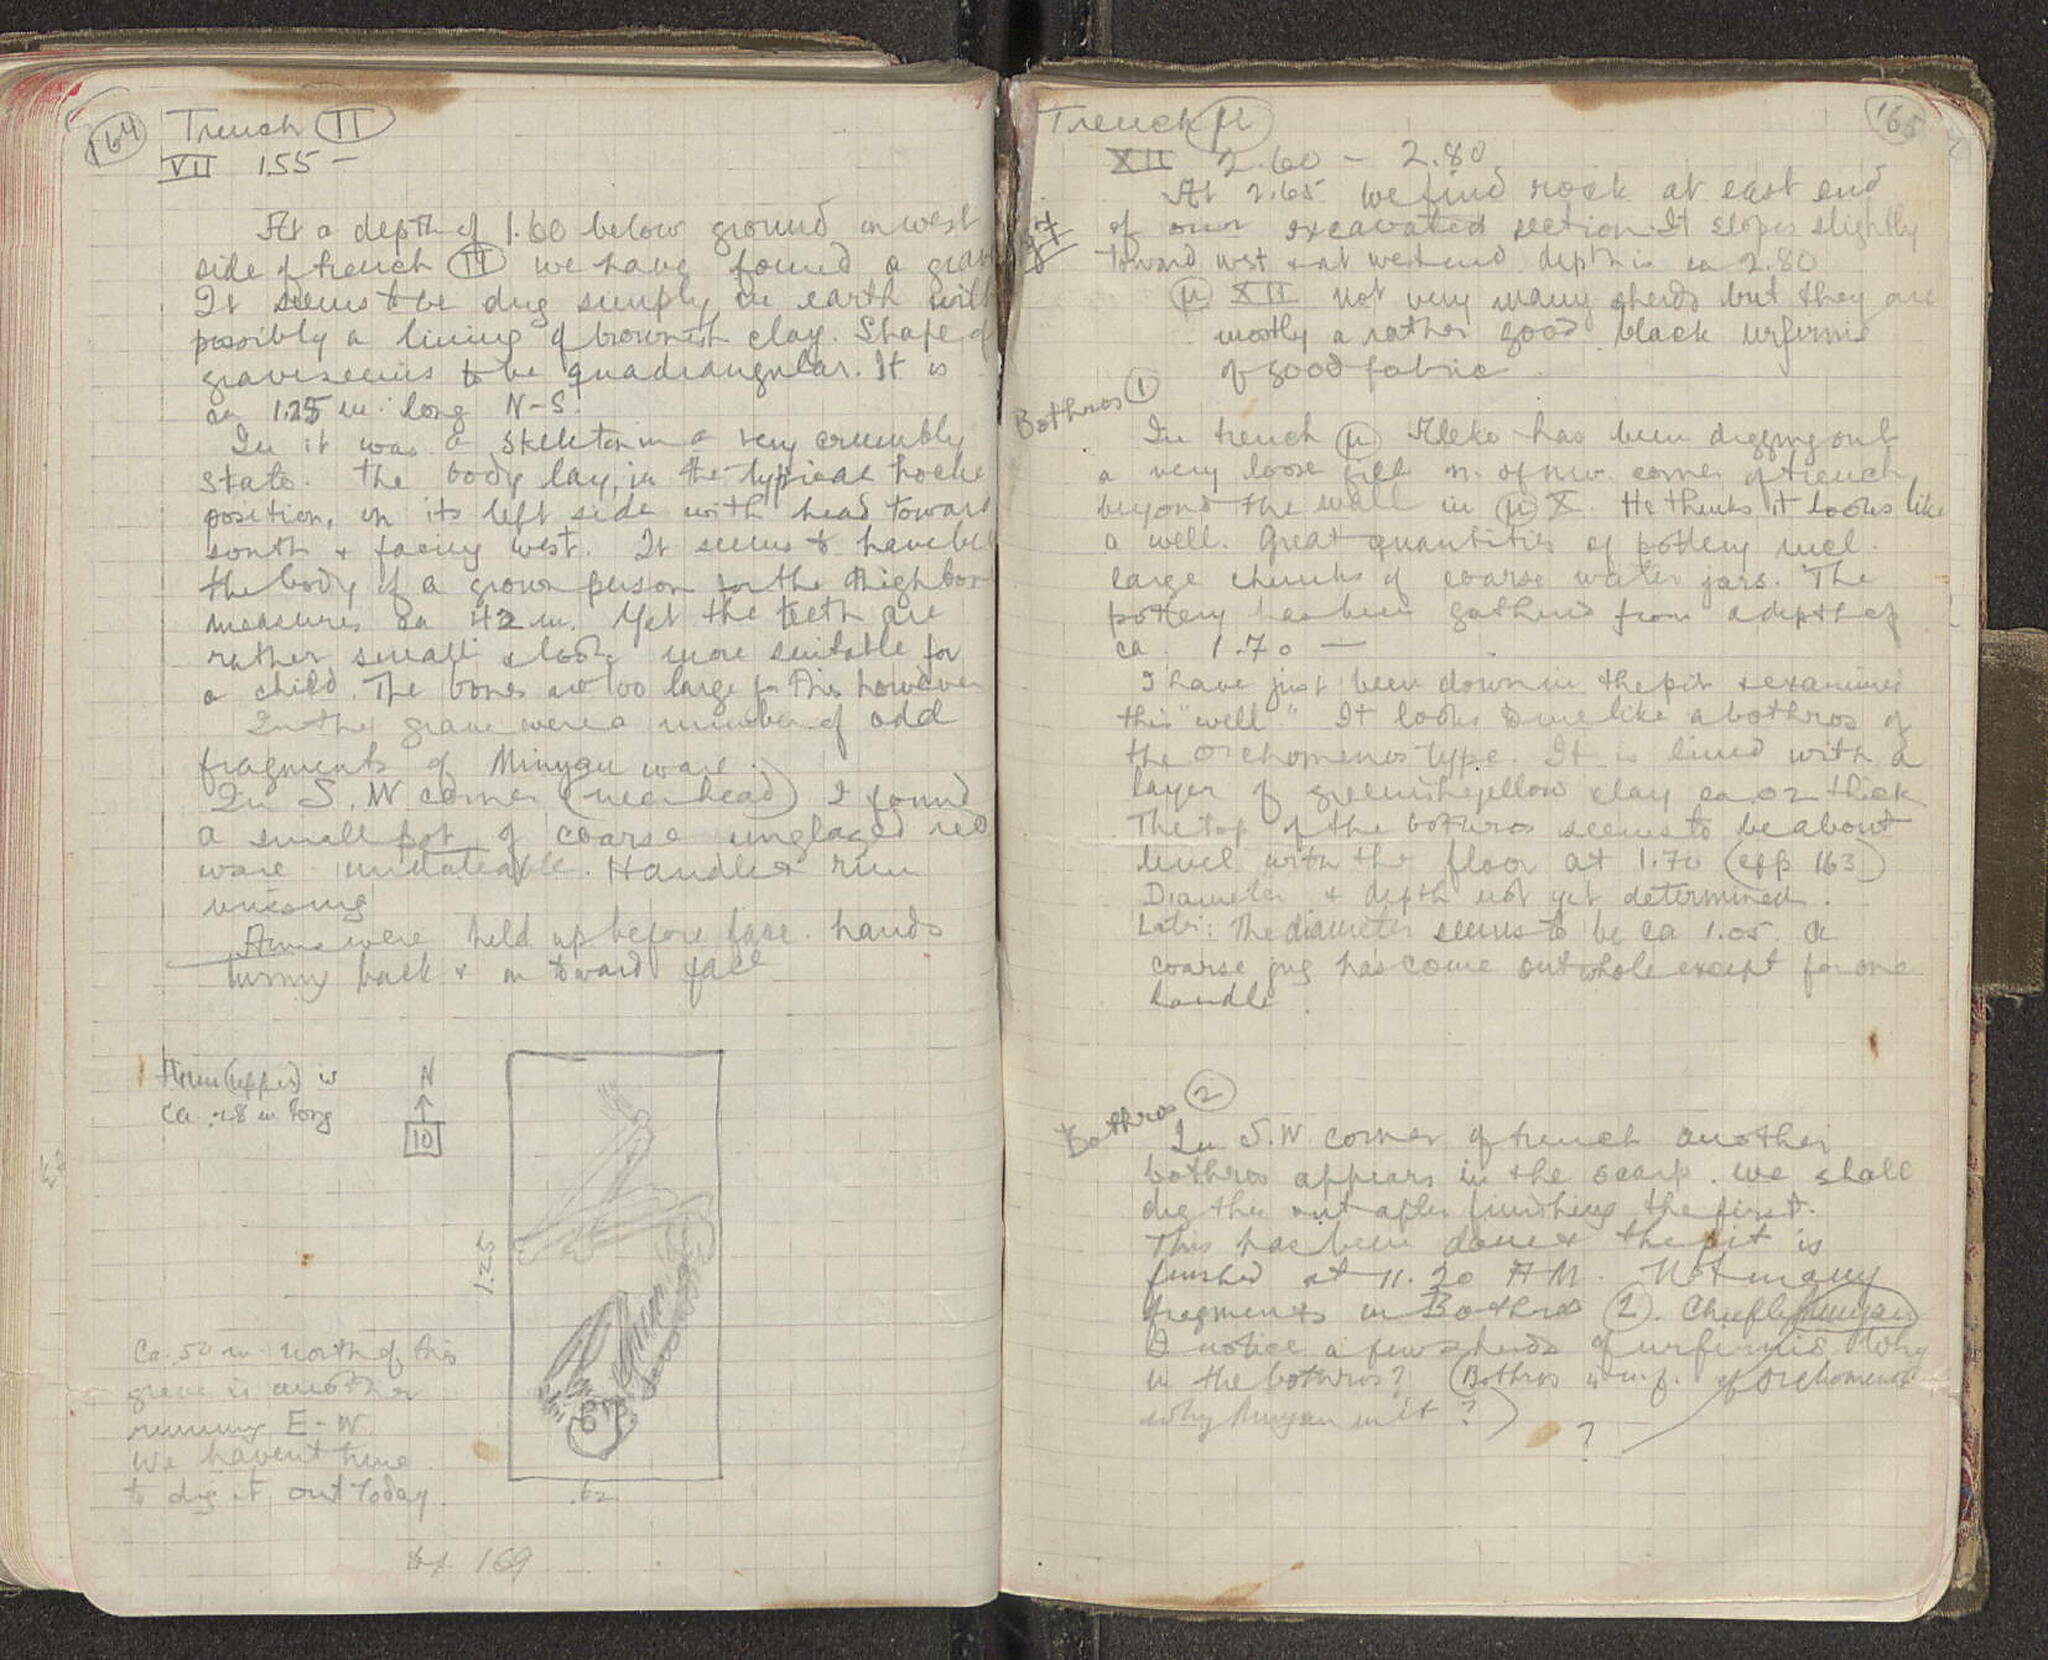 164
Trench II
VII 1.55 -
At a depth of 1.60 below ground on west
side of trench II we have found a grave
It seems to be dug simply in earth with
possibly a lining of brownish clay. Shape of
grave seems to be quadrangular. It is
ca 1.25 m. long N-S.
In it was a skeleton in a very crumbly
state. The body lay, in the typical hocker
position, on its left side with head toward
south & facing west. It seems to have been
the body of a grown person for the thigh bone
measures ca 42 m. Yet the teeth are
rather small & look more suitable for
a child. The bones are too large for this however
In the grave were a number of odd
fragments of Minyan ware.
In S.W corner (near head) I found
a small pot of coarse unglazed red
ware undateable. Handle & rim
missing
Arms were held up before face. hands
turning back & in toward face
Arm (upper) is
ca .28 m long
N
10
1.25
.62
Ca. 50 m north of this
grave is another
running E-W
We haven't time
to dig it out today.
169
Trench μ
165
XII 2.60 - 2.80
At 2.65 we find rock at east end
of our excavated section. It slopes slightly
toward west & at west end depth is ca 2.80
μ XII Not very many sherds but they are
mostly a rather good black urfirnis
of good fabric.
Bothros 1
In trench μ Aleko has been digging out
a very loose fill n. of nw. corner of trench
beyond the wall in μ X. He thinks it looks like
a well. Great quantities of pottery incl.
large chunks of coarse water jars. The
pottery has been gathered from a depth of
ca. 1.70 —
I have just been down in the pit & examined
this "well." It looks to me like a bothros of
the Orchomenos type. It is lined with a
layer of greenish yellow clay ca .02 thick
The top of the bothros seems to be about
level with the floor at 1.70 (cf p 163)
Diameter & depth not yet determined.
Later: The diameter seems to be ca 1.05. a
coarse jug has come out whole except for one
handle.
Bothros 2
In S.W corner of trench another
bothros appears in the scarp. We shall
dig this out after finishing the first.
This has been done & the pit is
finished at 11.20 AM. Not many
fragments in Bothros 2. Chiefly Minyan
I notice a few sherds of urfirnis. Why
in the bothros? (Bothros of Orchomenos
why Minyan in it?)
?